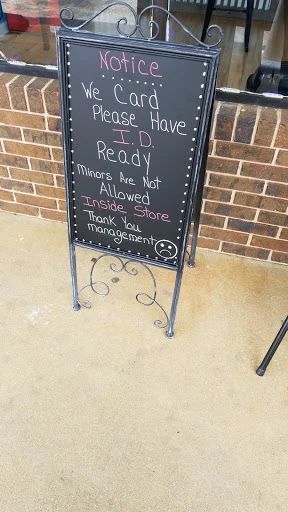 Notice
We Card
Please Have
I.D.
Ready
Minors Are Not
Allowed
Inside Store
Thank You
management